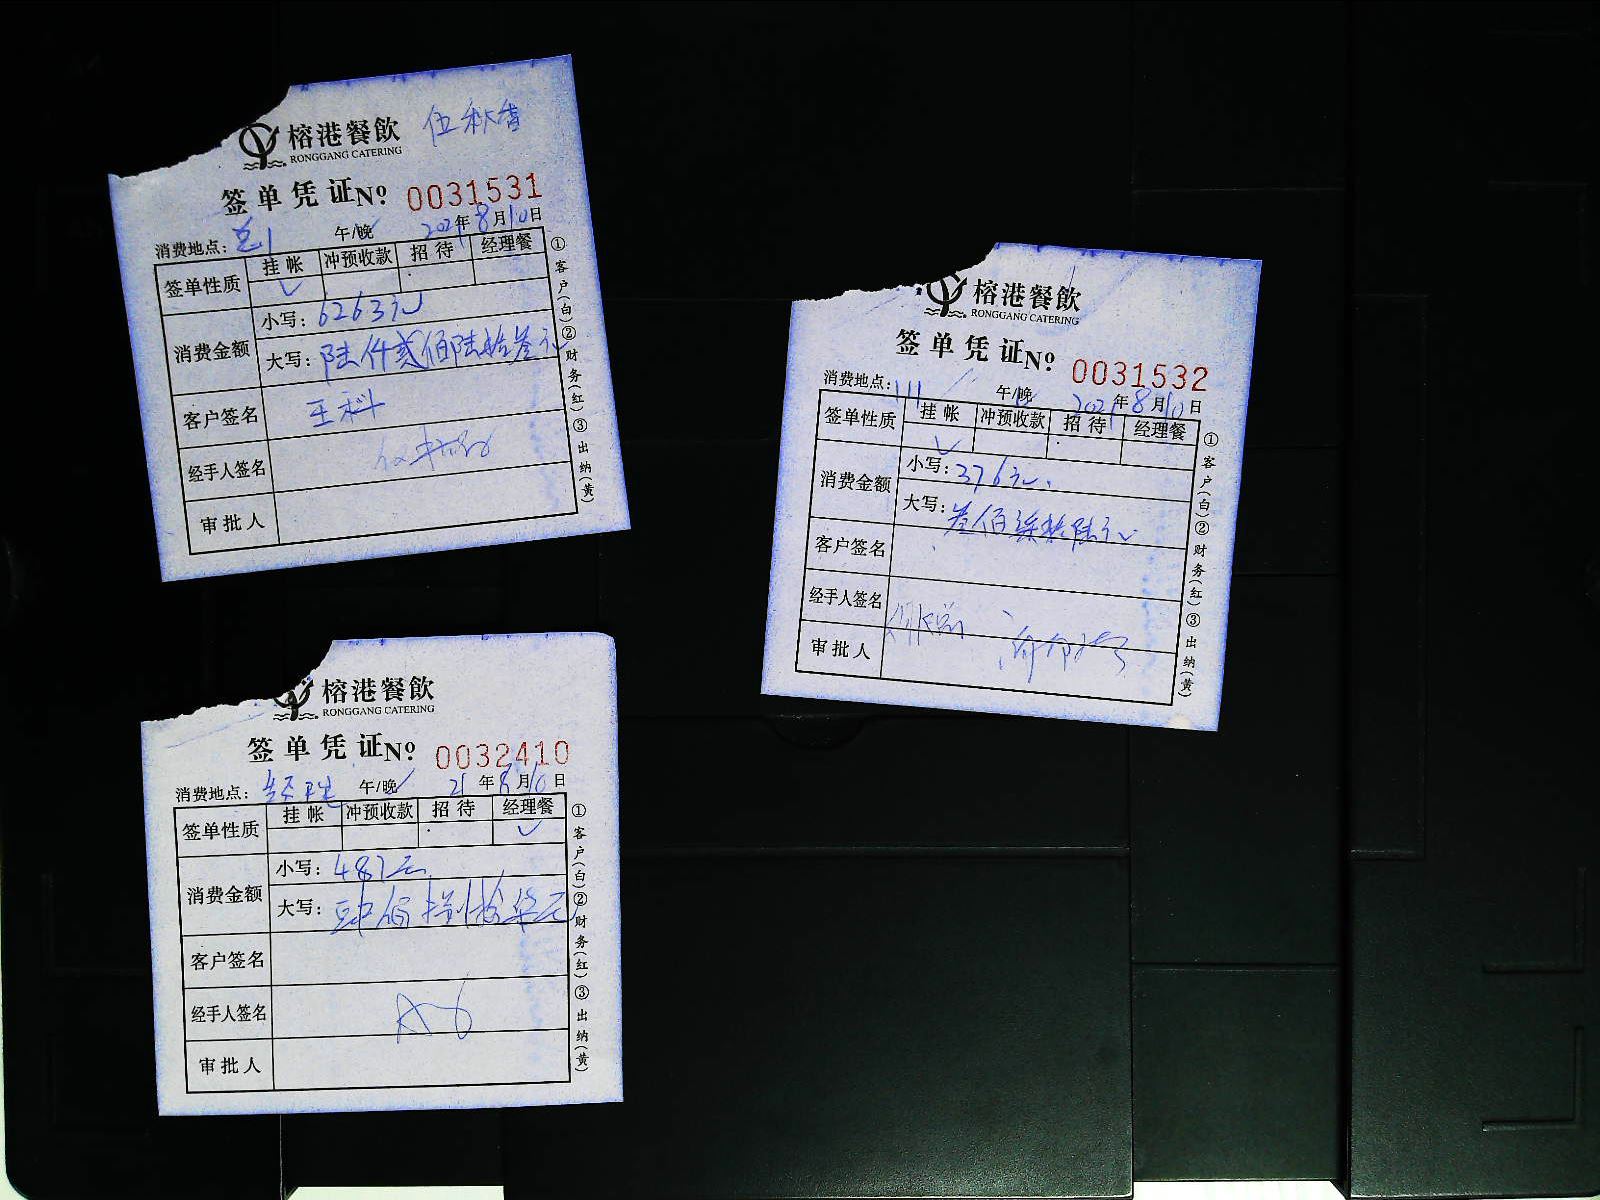 榕港餐飲 伍秋香
RONGGANG CATERING
签单凭证№ 0031531
消费地点: 午/晚 2021年8月10日
签单性质 挂帐 冲预收款 招待 经理餐
✓
消费金额 小写: 6263元
大写: 陆仟贰佰陆拾叁元
客户签名 王科
经手人签名
审批人
①客户(白)②财务(红)③出纳(黄)
榕港餐飲
RONGGANG CATERING
签单凭证№ 0031532
消费地点: 111 午/晚 2021年8月10日
签单性质 挂帐 冲预收款 招待 经理餐
✓
消费金额 小写: 376元
大写: 叁佰柒拾陆元
客户签名
经手人签名
审批人
①客户(白)②财务(红)③出纳(黄)
榕港餐飲
RONGGANG CATERING
签单凭证№ 0032410
消费地点: 经理 午/晚 21年8月10日
签单性质 挂帐 冲预收款 招待 经理餐
✓
消费金额 小写: 487元
大写: 肆佰捌拾柒元
客户签名
经手人签名
审批人
①客户(白)②财务(红)③出纳(黄)